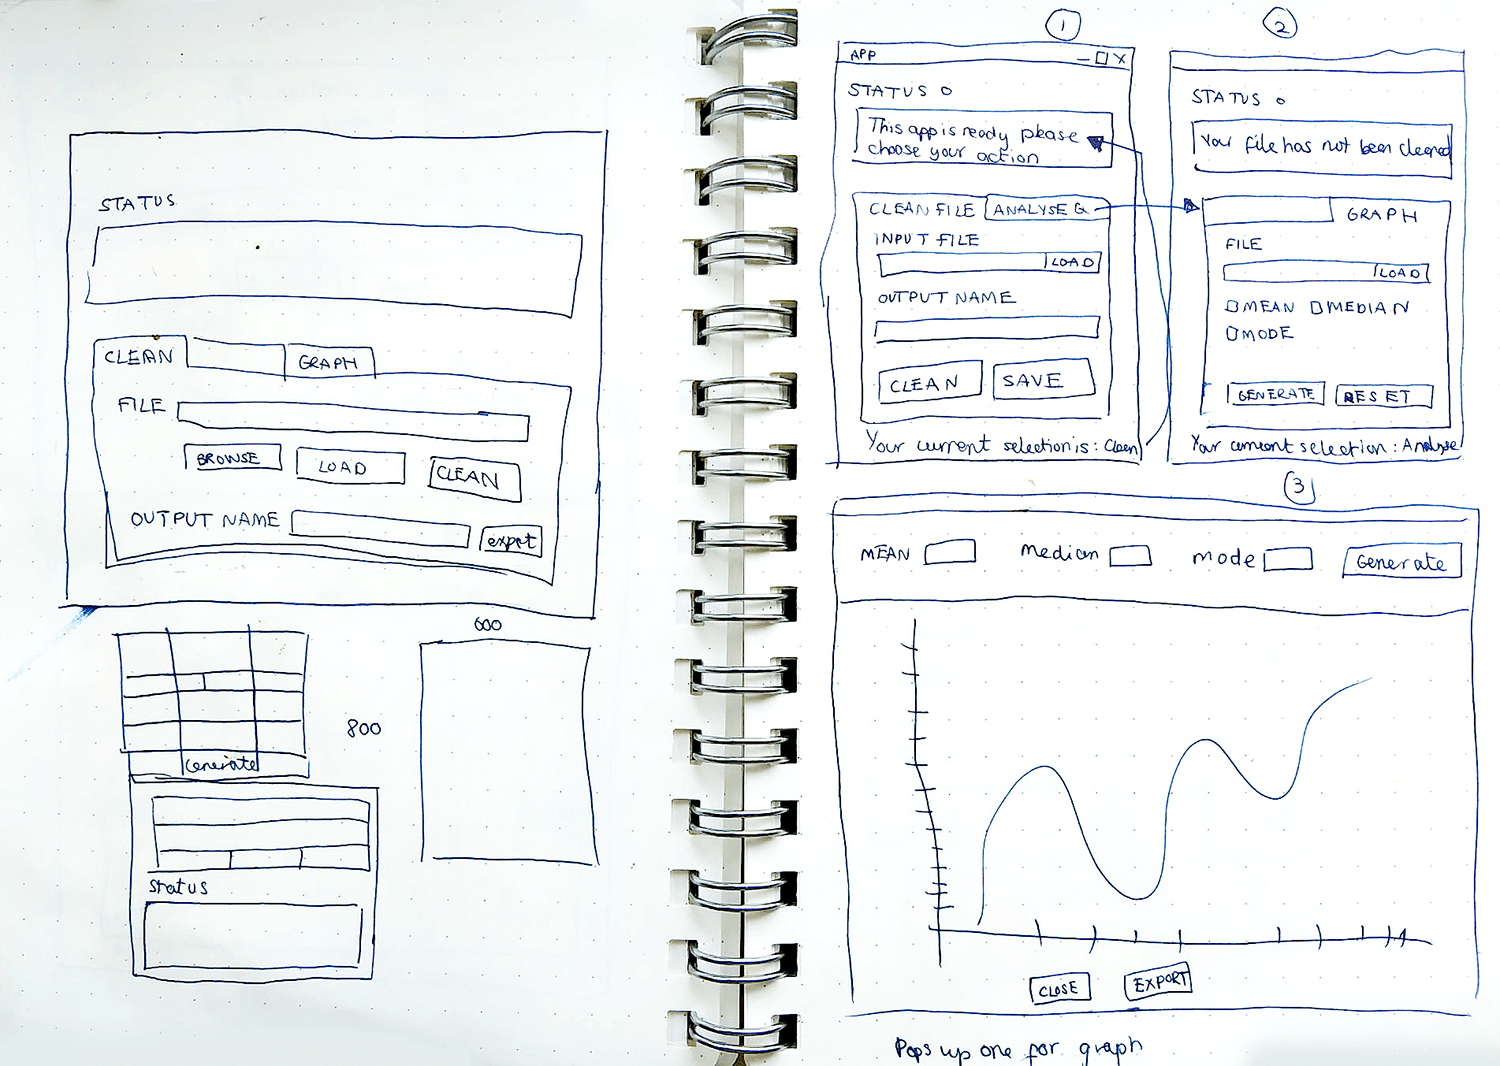 STATUS
CLEAN
GRAPH
FILE
BROWSE
LOAD
CLEAN
OUTPUT NAME
exprt
Generate
Status
600
800
1
APP
STATUS o
This app is ready please
choose your action
CLEAN FILE
ANALYSE &
INPUT FILE
LOAD
OUTPUT NAME
CLEAN
SAVE
Your current selection is : Clean
2
STATUS o
Your file has not been cleaned
GRAPH
FILE
LOAD
MEAN MEDIAN
MODE
GENERATE
RESET
Your current selection : Analyse
3
MEAN
median
mode
Generate
CLOSE
EXPORT
Pops up one for graph